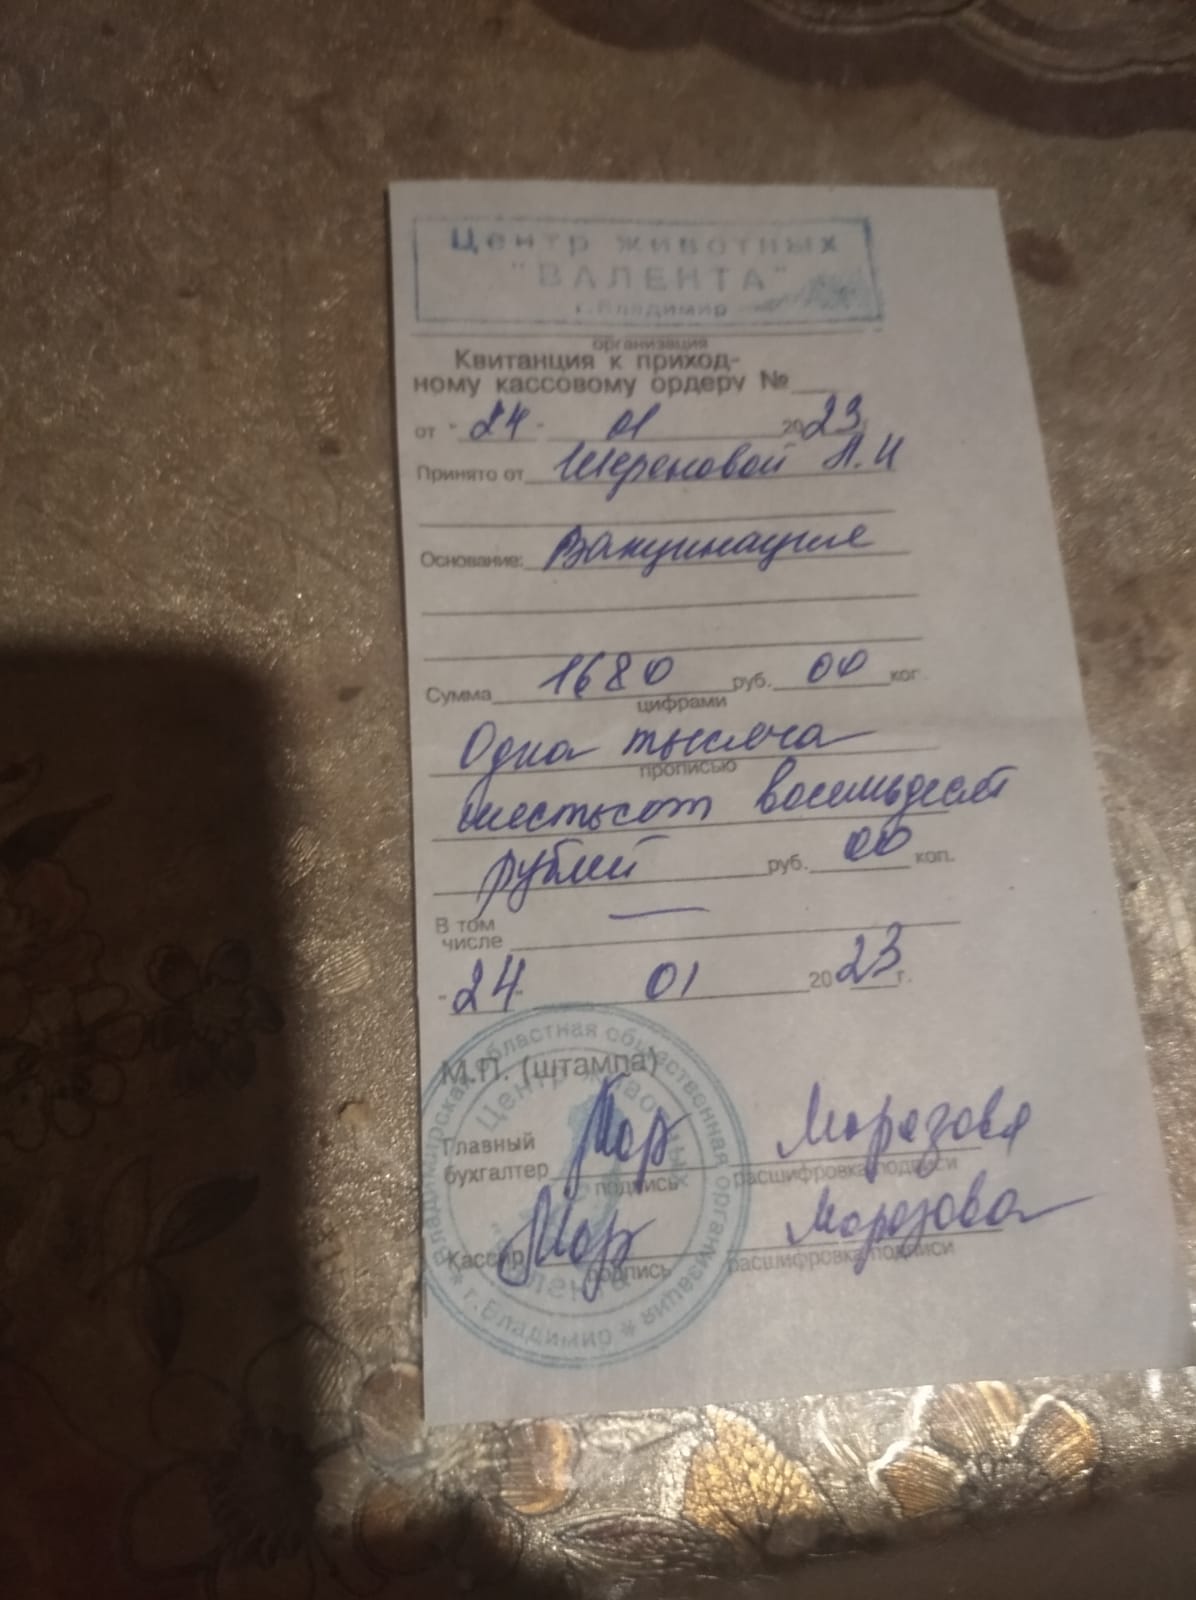 Центр животных
"ВАЛЕНТА"
г. Владимир
организация
Квитанция к приход-
ному кассовому ордеру №
от "24" 01 2023
Принято от
Основание: Вакцинация
Сумма 1680 руб. 00 коп.
цифрами
Одна тысяча
прописью
шестьсот восемьдесят
рублей руб. 00 коп.
В том
числе —
"24" 01 2023 г.
М.П. (штампа)
Главный
бухгалтер Мор Морозова
подпись расшифровка подписи
Кассир Мор Морозова
подпись расшифровка подписи
Владимирская областная общественная организация * г. Владимир *
Центр животных
"Валента"